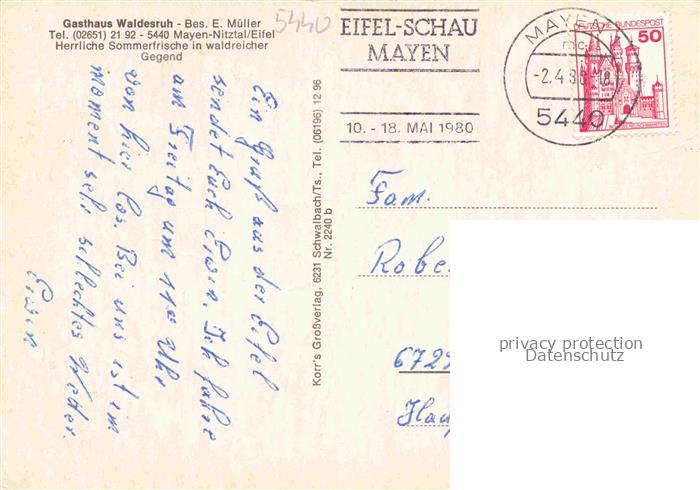 Gasthaus Waldesruh - Bes. E. Müller
Tel. (02651) 21 92 - 5440 Mayen-Nitztal/Eifel
Herrliche Sommerfrische in waldreicher
Gegend
5440
EIFEL-SCHAU
MAYEN
10. - 18. MAI 1980
MAYEN
mc
-2.4.80-18
5440
DEUTSCHE BUNDESPOST
50
Ein Gruß aus der Eifel
sendet Euch Erwin. Ich fahre
am Freitag um 11°° Uhr
von hier los. Bei uns ist im
moment sehr schlechtes Wetter.
Erwin
Korr's Großverlag, 6231 Schwalbach/Ts., Tel. (06196) 12 96
Nr. 2240 b
Fam.
Robe
672
privacy protection
Datenschutz